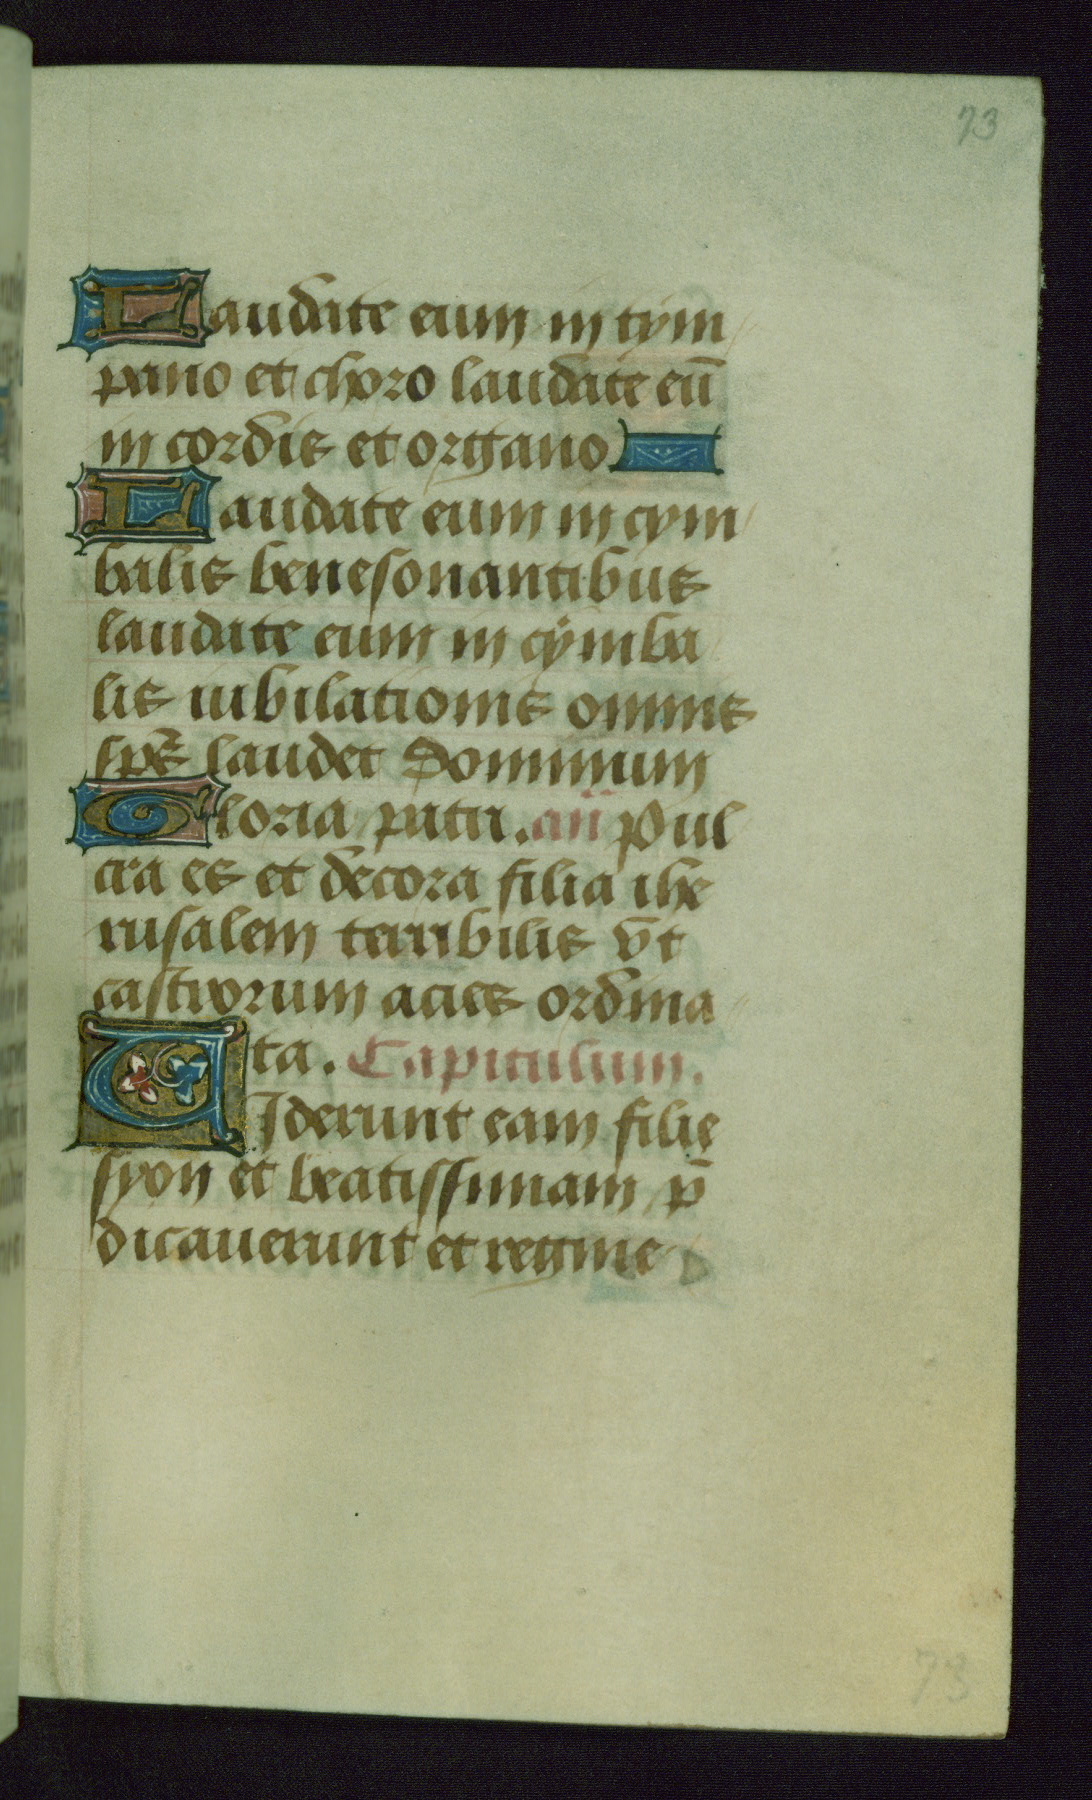 73
Laudate eum in tym
pano et choro laudate eū
in cordis et organo
Laudate eum in cym
balis benesonantibus
laudate eum in cymba
lis iubilationis omnis
sp̄s laudet dominum
Gloria patri. añ Pul
cra es et decora filia ihe
rusalem terribilis v̄t
castrorum acies ordina
ta. Capitulum.
VIderunt eam filie
syon et beatissimam p̄
dicauerunt et regine
73